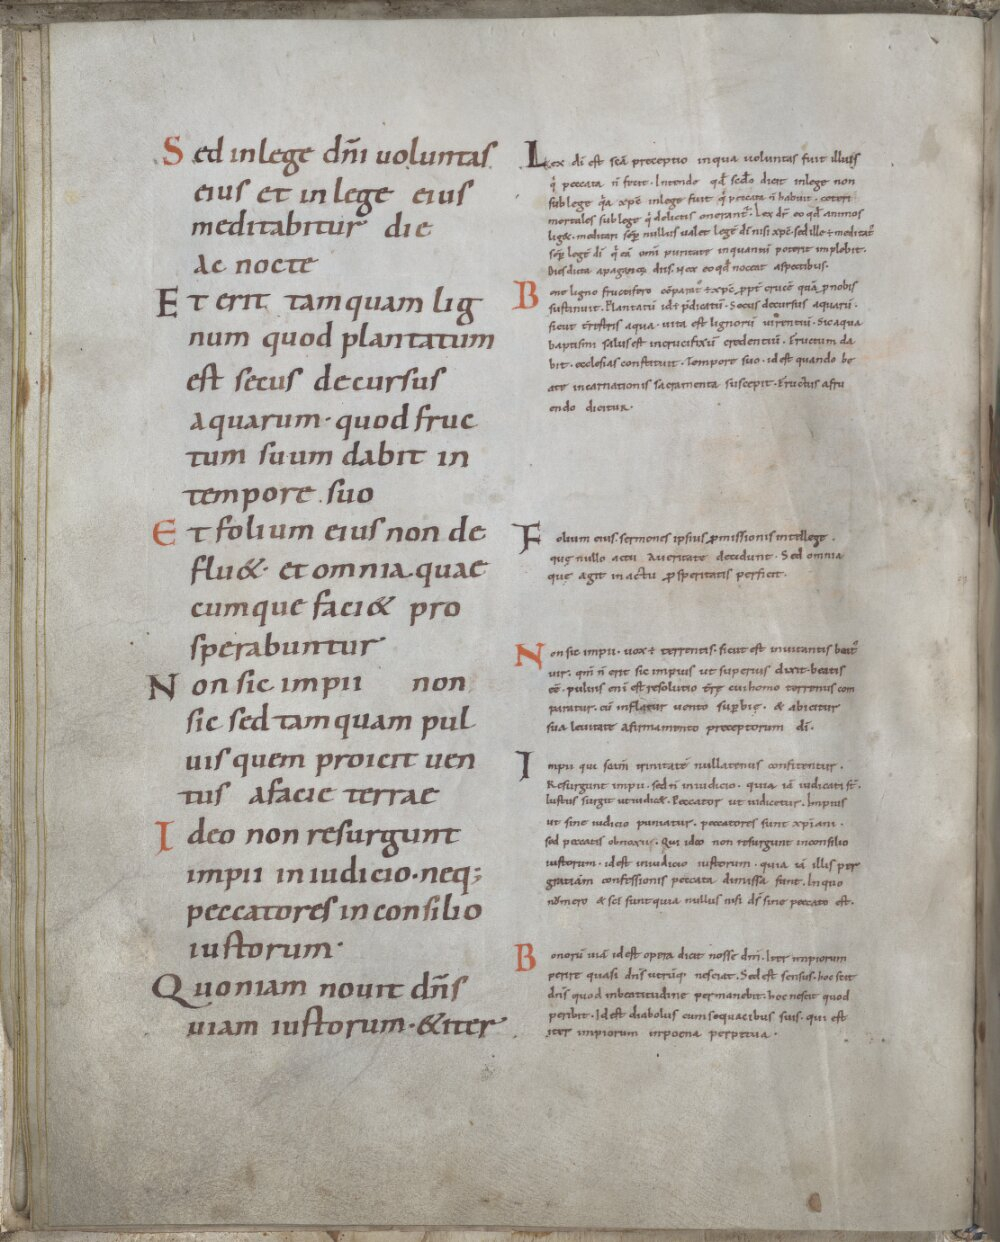 Sed in lege dn̄i uoluntas
eius et in lege eius
meditabitur die
ac nocte
Et erit tamquam lig
num quod plantatum
est secus decursus
aquarum· quod fruc
tum suum dabit in
tempore suo
Et folium eius non de
flu&· et omnia quae
cumque faci& pro
sperabuntur
Non sic impii non
sic sed tamquam pul
uis quem proicit uen
tus a facie terrae
Ideo non resurgunt
impii in iudicio· neq;
peccatores in consilio
iustorum·
Quoniam nouit dn̄s
uiam iustorum· & iter
Lex dī est preceptio in qua uoluntas fuit illius
peccata n̄ fecit· Intende dicit in lege non
sub lege xp̄c in lege fuit peccata n̄ habuit· ceteri
mortales sub lege delictis Lex animos
meditari nullus ualet legē dī nisi xp̄c· sed ille
legē dī puritate in quantū poterit implebit·
noceat aspectibus·
Bono ligno fructifero
sustinuit· Plantatū Secus decursus aquarū·
sicut aqua· uita est lignorū uirentiū· Sic aqua
baptismi salus est in crucifixū credentiū· Fructum da
bit· ecclesias constituit· Tempore suo· id est quando be
atę incarnationis sacramenta suscepit· Fructus a fru
endo dicitur·
Folium eius· sermones ipsius ꝓmissionis intellege·
quę nullo actu a ueritate decidunt· Sed omnia
quę agit in actu ꝓsperitatis perficit·
Non sic impii· uox terrentis· sicut est inuitantis
uir· n̄ erit sic impius ut superius dixit· beatis
puluis enī est resolutio cui homo terrenus com
paratur· cū inflatur uento & abicitur
sua leuitate a firmamento preceptorum dī·
Impii qui trinitatē nullatenus confitentur·
Resurgunt impii· sed n̄ in iudicio· quia iā iudicati
Iustus surgit ut iudic&· Peccator ut iudicetur· Impius
ut sine iudicio puniatur· peccatores sunt xp̄iani·
sed peccatis obnoxii· Qui ideo non resurgunt in consilio
iustorum· id est in iudicio iustorum· quia iā illis per
gratiam confessionis peccata dimissa sunt· In quo
numero & sc̄i sunt quia nullus nisi dī sine peccato est·
Bonorū uiā id est opera dicit nosse dn̄m· Iter impiorum
perire quasi dn̄s nesciat· Sed est sensus· hoc scit
dn̄s quod in beatitudine permanebit· hoc nescit quod
peribit· Id est diabolus cum sequacibus suis· qui est
iter impiorum in poena perpetua·